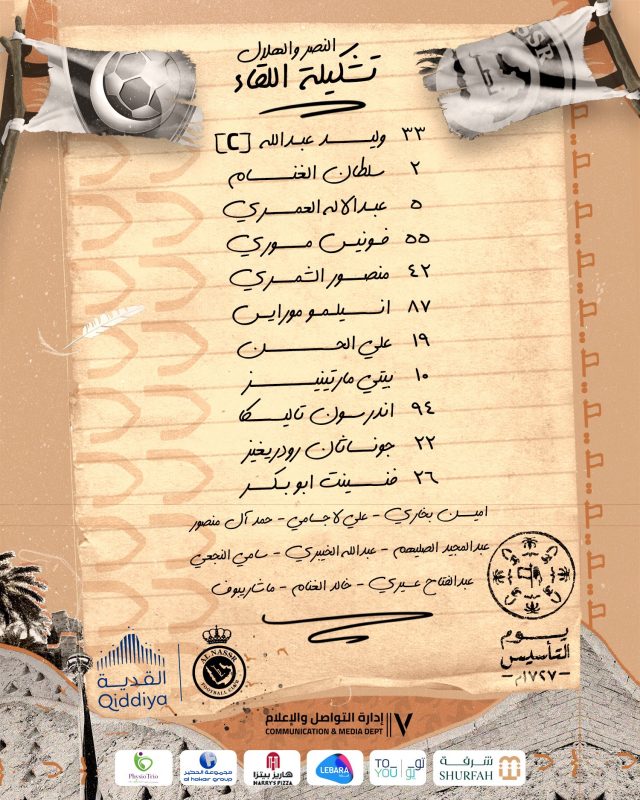 النصر والهلال
تشكيلة اللقاء
٣٣ وليد عبدالله [C]
٢ سلطان الغنام
٥ عبدالاله العمري
٥٥ فونيس موري
٤٢ منصور الشمري
٨٧ انسيلمو مورايس
١٩ علي الحسن
١٠ بيتي مارتينيز
٩٤ اندرسون تاليسكا
٢٢ جوناثان رودريغيز
٢٦ فنسينت ابو بكر
امين بخاري - علي لاجامي - حمد آل منصور
عبدالمجيد الصليهم - عبدالله الخيبري - سامي النجعي
عبدالفتاح عسيري - خالد الغنام - ماشاريبوف
يوم
التأسيس
١٧٢٧م
القدية
Qiddiya
AL NASSR
FOOTBALL CLUB
إدارة التواصل والإعلام
COMMUNICATION & MEDIA DEPT
PhysioTrio
مجموعة الحكير
al hokair group
هاريز بيتزا
HARRY'S PIZZA
LEBARA
TO YOU
تو يو
شرفة
SHURFAH